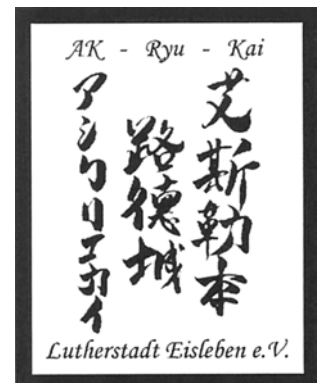 AK - Ryu - Kai
艾斯勒本
路德城
アシクリエカイ
Lutherstadt Eisleben e.V.